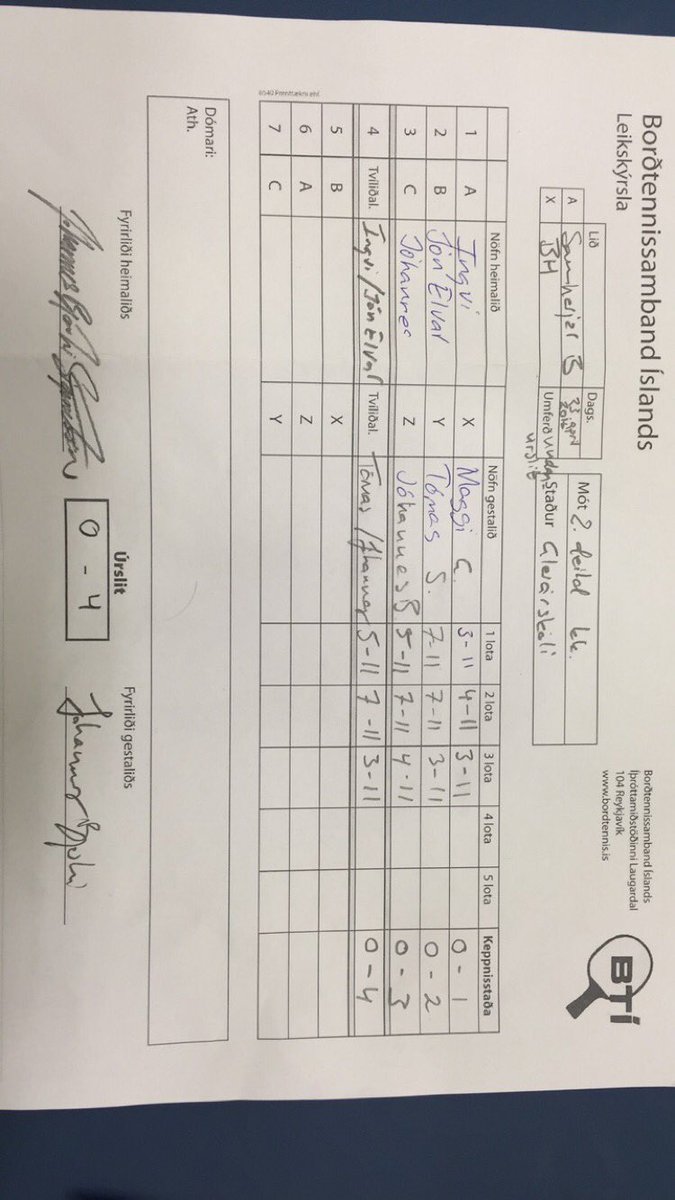 Borðtennissamband Íslands
Leikskýrsla
Borðtennissamband Íslands
Íþróttamiðstöðinni Laugardal
104 Reykjavík
www.bordtennis.is
BTÍ
Lið Dags. Mót 2. deild kk.
A Samherjar B
X BH Umferð Undanúrslit Staður Glerárskóli
Nöfn heimalið Nöfn gestalið 1 lota 2 lota 3 lota 4 lota 5 lota Keppnisstaða
1 A Ingvi X Maggi G. 3-11 4-11 3-11 0-1
2 B Jón Elvar Y Tómas S. 7-11 7-11 3-11 0-2
3 C Jóhannes Z Jóhannes B 5-11 7-11 4-11 0-3
4 Tvíliðal. Ingvi/Jón Elvar Tvíliðal. Tómas/Jóhannes 5-11 7-11 3-11 0-4
5 B X
6 A Z
7 C Y
6540 Prenttækni ehf.
Dómari:
Ath.
Fyrirliði heimaliðs Úrslit Fyrirliði gestaliðs
0-4